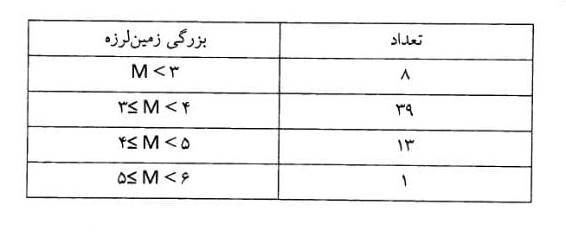 بزرگی زمین‌لرزه	تعداد
M < ۳	۸
۳≤ M < ۴	۳۹
۴≤ M < ۵	۱۳
۵≤ M < ۶	۱